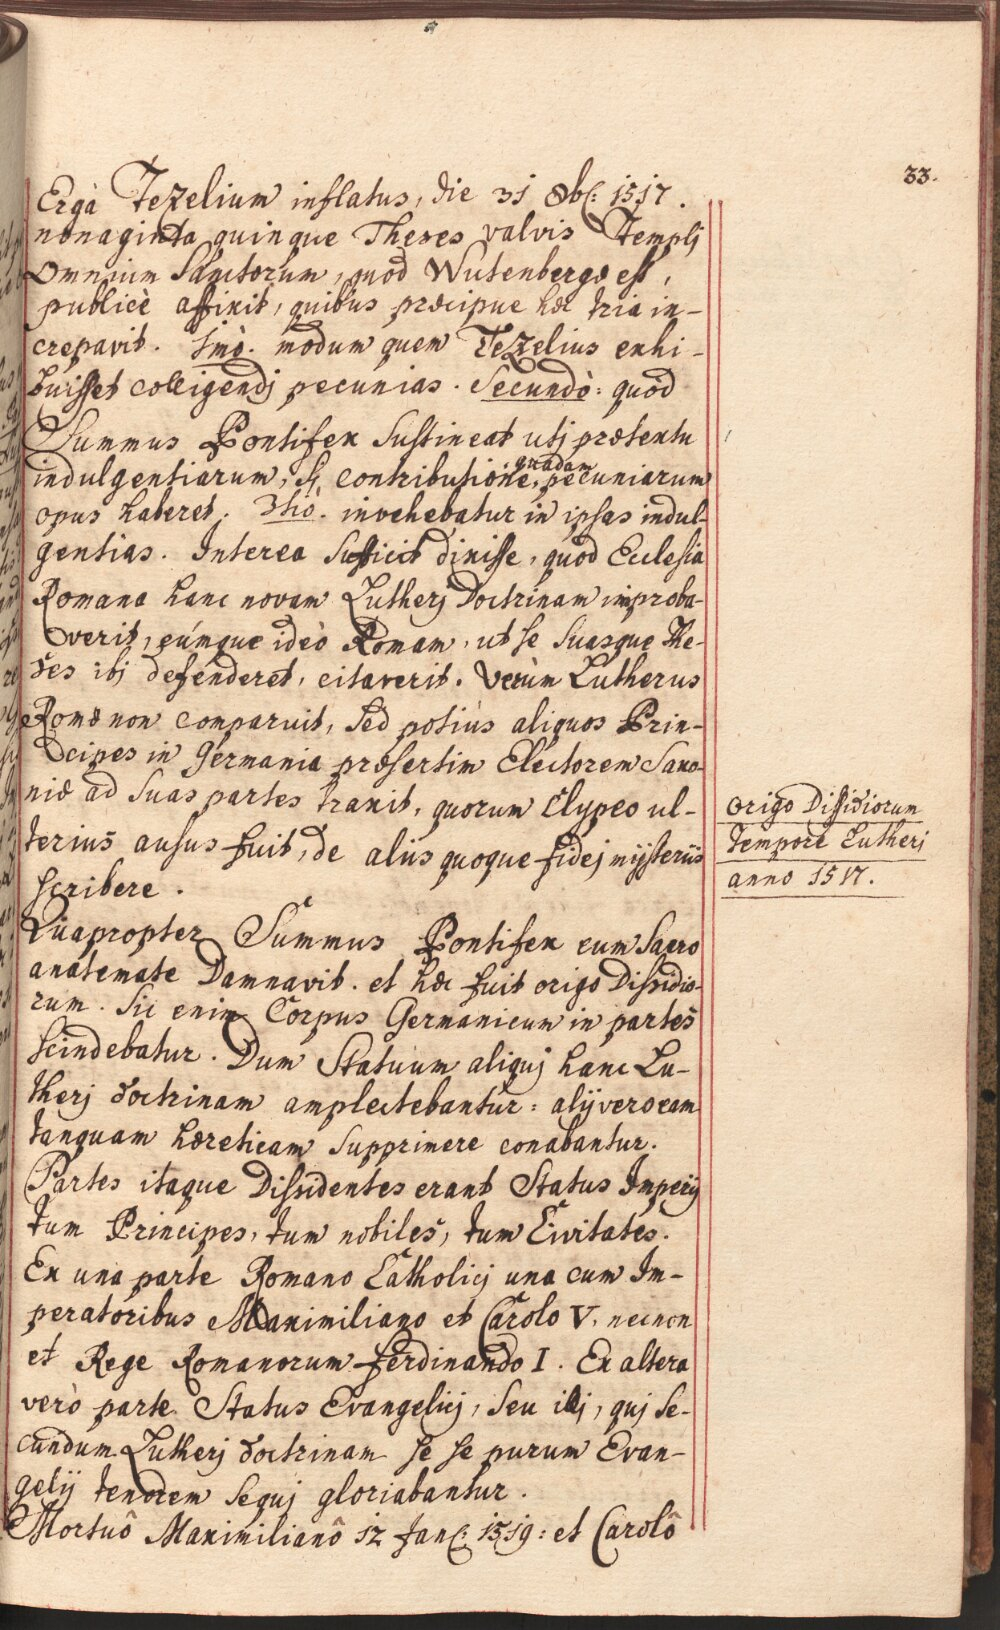 33.
Ergà Tezelium inflatus, die 31 8b[: 1517.
nonaginta quinque Theses valvis Templj
Omnium Sanctorum, quod Wutenbergæ est,
publicè affixit, quibus præcipue hæc tria in-
crepavit. 1mò. modum quem Tezelius exhi-
buisset colligendj pecunias. Secundò: quòd
Summus Pontifex sustineat utj prætextu
indulgentiarum, si contributione quadam pecuniarum
opus haberet. 3tiò. invehebatur in ipsas indul-
gentias. Interea sufficit dixisse, quòd Ecclesia
Romana hanc novam Lutherj Doctrinam improba-
verit, eúmque ideò Romam, ut se suasque The-
ses ibj defenderet, citaverit. Verùm Lutherus
Romæ non comparuit, sed potiùs aliquos Prin-
cipes in Germania præsertim Electorem Saxo-
niæ ad suas partes traxit, quorum Clypeo ul-
terius ausus fuit, de aliis quoque fidej mÿsteriis
scribere.
Origo Dissidiorum
Tempore Lutherj
anno 1517.
Quapropter Summus Pontifex eum Sacro
anatemate Damnavit. et hæc fuit origo Dissidio-
rum. Sic enim Corpus Germanicum in partes
scindebatur. Dum Statuum aliquj hanc Lu-
therj doctrinam amplectebantur: alÿ vero eam
tanquam hæreticam supprimere conabantur.
Partes itaque Dissidentes erant Status Imperÿ
tum Principes, tum nobiles, tum Civitates.
Ex una parte Romano Catholicj una cum Im-
peratoribus Maximiliano et Carolo V. necnon
et Rege Romanorum Ferdinando I. Ex altera
verò parte Status Evangelicj, seu illj, quj se-
cundum Lutherj doctrinam se se purum Evan-
gelÿ tenorem sequj gloriabantur.
Mortuô Maximilianô 12 Jan[: 1519: et Carolô